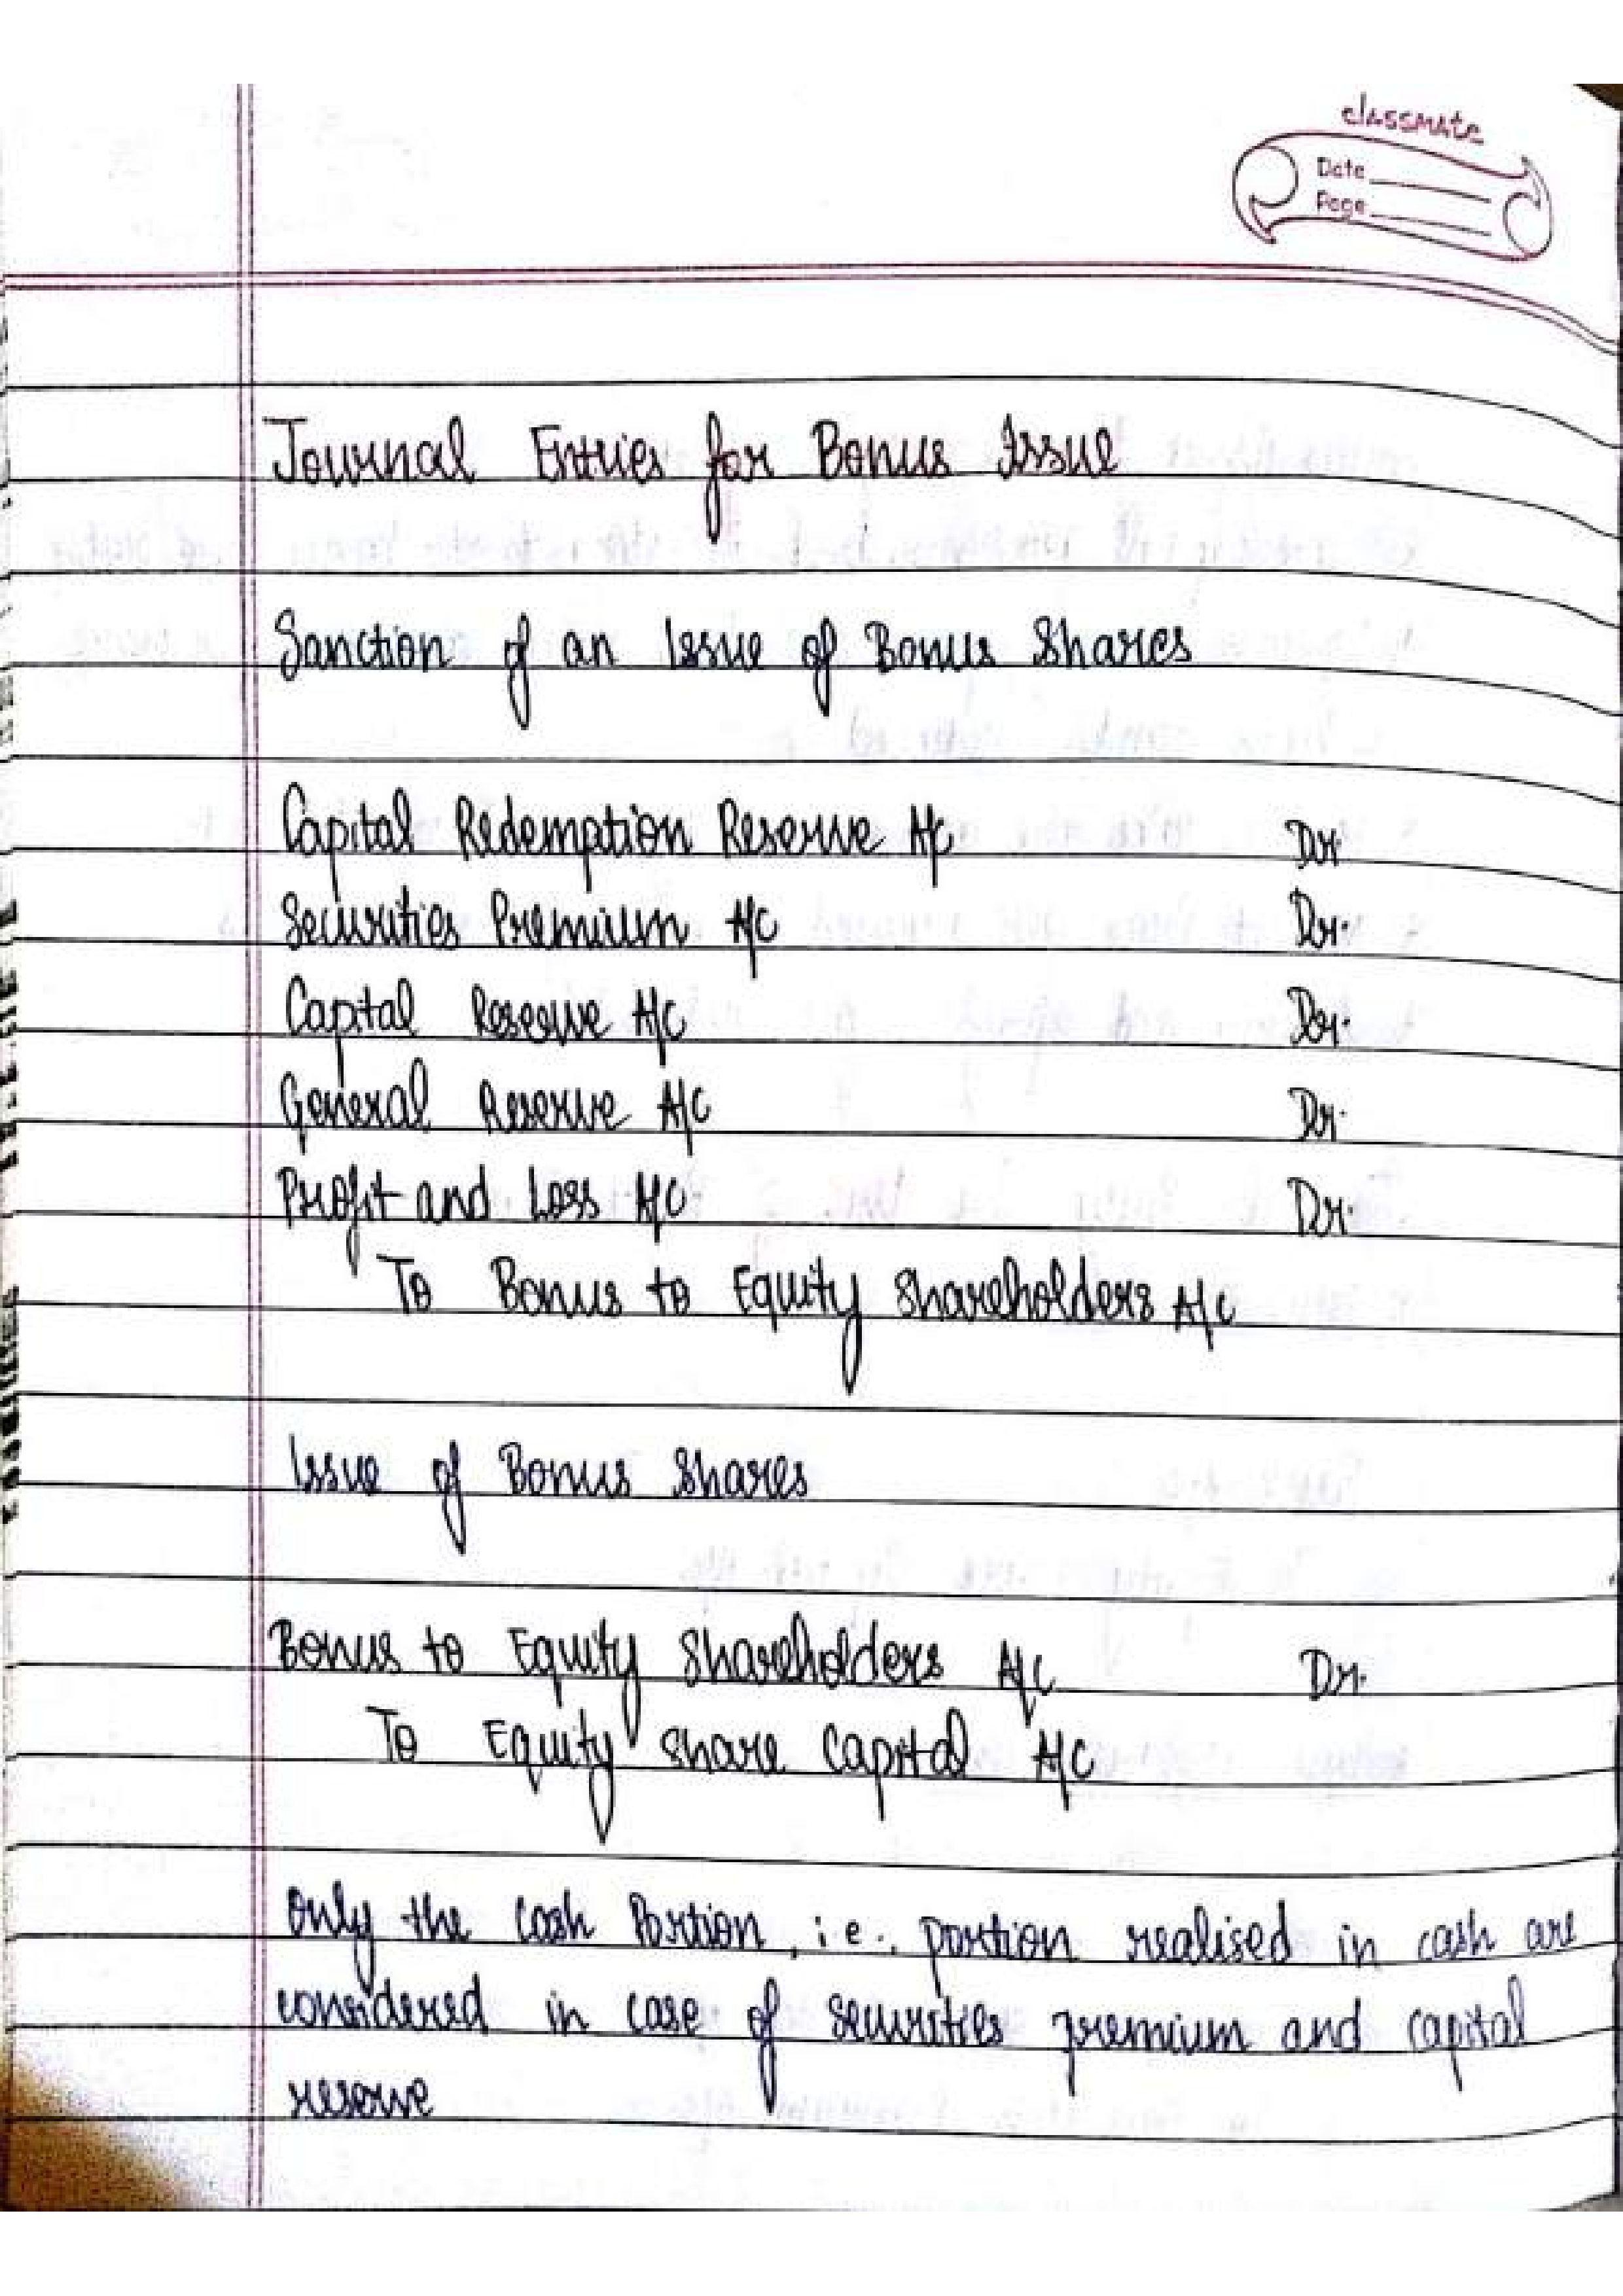 classmate
Date
Page
Journal Entries for Bonus Issue
Sanction of an Issue of Bonus Shares
Capital Redemption Reserve A/c Dr.
Securities Premium A/c Dr.
Capital Reserve A/c Dr.
General Reserve A/c Dr.
Profit and Loss A/c Dr.
To Bonus to Equity Shareholders A/c
Issue of Bonus Shares
Bonus to Equity Shareholders A/c Dr.
To Equity Share Capital A/c
Only the cash Portion, i.e., portion realised in cash are
considered in case of securities premium and capital
reserve